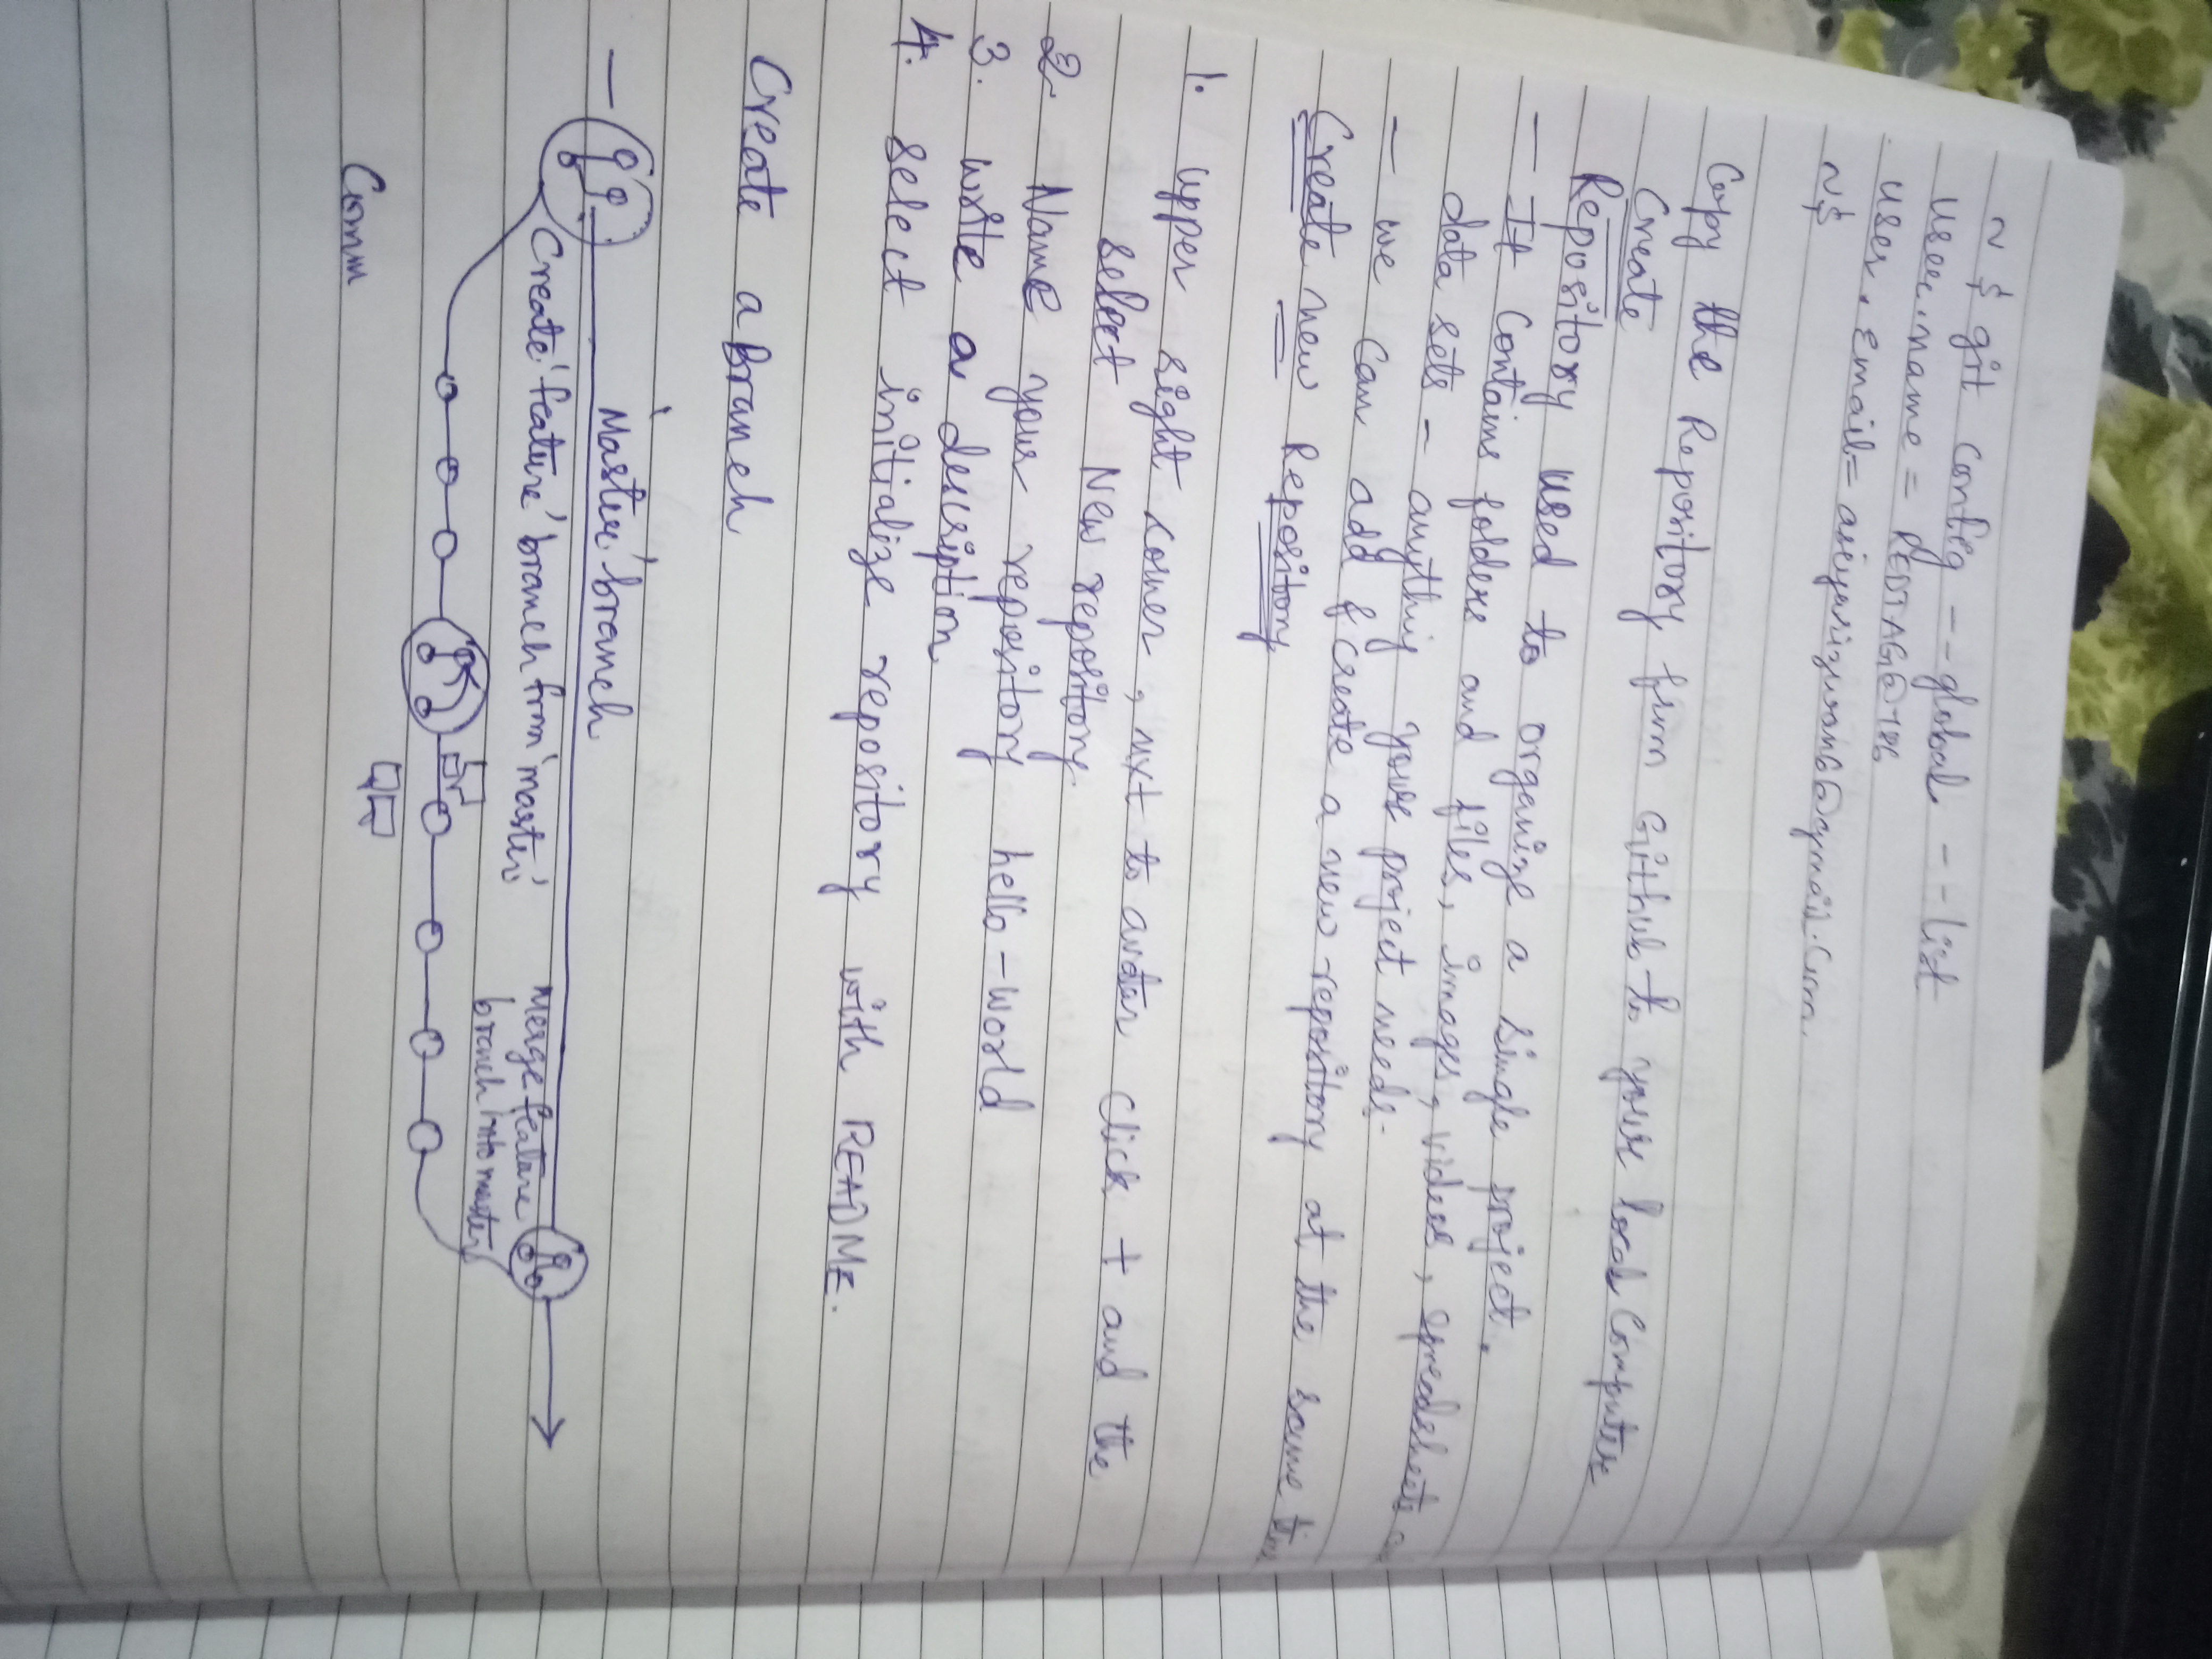 ~ $ git config -- global -- list
user.name =
user.email =
~$
Copy the Repository from Github to your local Computer
Create
Repository used to organize a single project.
- It Contains folders and files, images, videos, spreadsheets
data sets - anything your project needs.
- we can add & create a new repository at the same time
Create new Repository
1. Upper right corner, nxt to avatar click + and the
select New repository.
2. Name your repository hello-world
3. write a description
4. select initialize repository with README.
Create a branch
- 'Master' branch
Create 'feature' branch from 'master'
Merge feature
branch into master
Comm